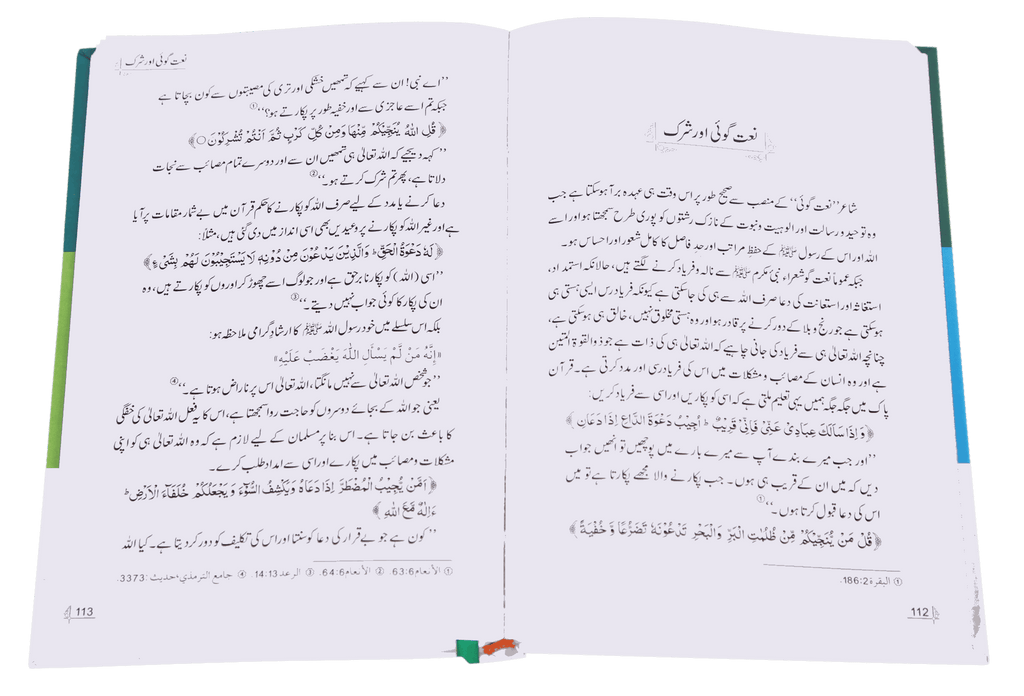 نعت گوئی اور شرک
شاعر ’’نعت گوئی‘‘ کے منصب سے صحیح طور پر اس وقت ہی عہدہ برآ ہو سکتا ہے جب
وہ توحید و رسالت اور الوہیت و نبوت کے نازک رشتوں کو پوری طرح سمجھتا ہو اور اسے
اللہ اور اس کے رسول ﷺ کے حفظِ مراتب اور حدِ فاصل کا کامل شعور اور احساس ہو۔
جبکہ عموماً نعت گو شعراء نبیٔ مکرم ﷺ سے نالہ و فریاد کرنے لگتے ہیں، حالانکہ استمداد،
استغاثہ اور استعانت کی دعا صرف اللہ سے ہی کی جاسکتی ہے کیونکہ فریاد رس ایسی ہستی ہی
ہوسکتی ہے جو رنج و بلا کے دور کرنے پر قادر ہو اور وہ ہستی مخلوق نہیں، خالق ہی ہوسکتی ہے،
چنانچہ اللہ تعالیٰ ہی سے فریاد کی جانی چاہیے کہ اللہ تعالیٰ ہی کی ذات ہے جو ذوالقوۃ المتین
ہے اور وہ انسان کے مصائب و مشکلات میں اس کی فریاد رسی اور مدد کرتی ہے۔ قرآن
پاک میں جگہ جگہ ہمیں یہی تعلیم ملتی ہے کہ اسی کو پکاریں اور اسی سے فریاد کریں:
﴿وَاِذَا سَاَلَكَ عِبَادِیْ عَنِّیْ فَاِنِّیْ قَرِیْبٌ ؕ اُجِیْبُ دَعْوَةَ الدَّاعِ اِذَا دَعَانِ﴾
’’اور جب میرے بندے آپ سے میرے بارے میں پوچھیں تو انھیں جواب
دیں کہ میں ان کے قریب ہی ہوں۔ جب پکارنے والا مجھے پکارتا ہے تو میں
اس کی دعا قبول کرتا ہوں۔‘‘①
﴿قُلْ مَنْ یُّنَجِّیْكُمْ مِّنْ ظُلُمٰتِ الْبَرِّ وَالْبَحْرِ تَدْعُوْنَهٗ تَضَرُّعًا وَّخُفْیَةً﴾
① البقرۃ 186:2.
112
نعت گوئی اور شرک
’’اے نبی! ان سے کہیے کہ تمھیں خشکی اور تری کی مصیبتوں سے کون بچاتا ہے
جبکہ تم اسے عاجزی سے اور خفیہ طور پر پکارتے ہو؟‘‘①
﴿قُلِ اللّٰهُ یُنَجِّیْكُمْ مِّنْهَا وَمِنْ كُلِّ كَرْبٍ ثُمَّ اَنْتُمْ تُشْرِكُوْنَ ○﴾
’’کہہ دیجیے کہ اللہ تعالیٰ ہی تمھیں ان سے اور دوسرے تمام مصائب سے نجات
دلاتا ہے، پھر تم شرک کرتے ہو۔‘‘②
دعا کرنے یا مدد کے لیے صرف اللہ کو پکارنے کا حکم قرآن میں بے شمار مقامات پر آیا
ہے اور غیر اللہ کو پکارنے پر وعیدیں بھی اسی انداز میں دی گئی ہیں، مثلاً:
﴿لَهٗ دَعْوَةُ الْحَقِّ ؕ وَالَّذِیْنَ یَدْعُوْنَ مِنْ دُوْنِهٖ لَا یَسْتَجِیْبُوْنَ لَهُمْ بِشَیْءٍ﴾
’’اسی (اللہ) کو پکارنا برحق ہے اور جو لوگ اسے چھوڑ کر اوروں کو پکارتے ہیں، وہ
ان کی پکار کا کوئی جواب نہیں دیتے۔‘‘③
بلکہ اس سلسلے میں خود رسول اللہ ﷺ کا ارشادِ گرامی ملاحظہ ہو:
«إِنَّهُ مَنْ لَّمْ يَسْأَلِ اللّٰهَ يَغْضَبْ عَلَيْهِ»
’’جو شخص اللہ تعالیٰ سے نہیں مانگتا، اللہ تعالیٰ اس پر ناراض ہوتا ہے۔‘‘④
یعنی جو اللہ کے بجائے دوسروں کو حاجت روا سمجھتا ہے، اس کا یہ فعل اللہ تعالیٰ کی خفگی
کا باعث بن جاتا ہے۔ اس بنا پر مسلمان کے لیے لازم ہے کہ وہ اللہ تعالیٰ ہی کو اپنی
مشکلات و مصائب میں پکارے اور اسی سے امداد طلب کرے۔
﴿اَمَّنْ یُّجِیْبُ الْمُضْطَرَّ اِذَا دَعَاهُ وَیَكْشِفُ السُّوْٓءَ وَیَجْعَلُكُمْ خُلَفَآءَ الْاَرْضِ ؕ
ءَاِلٰهٌ مَّعَ اللّٰهِ﴾
’’کون ہے جو بے قرار کی دعا کو سنتا اور اس کی تکلیف کو دور کر دیتا ہے۔ کیا اللہ
① الأنعام 63:6. ② الأنعام 64:6. ③ الرعد 14:13. ④ جامع الترمذي، حديث: 3373.
113